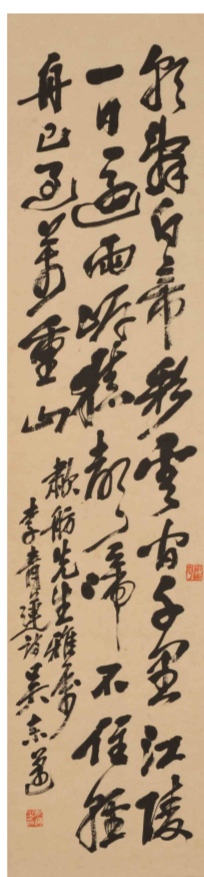 朝辭白帝彩雲間千里江陵
一日還兩岸猿聲啼不住輕
舟已過萬重山
舫先生雅屬
李青蓮詩吳東邁